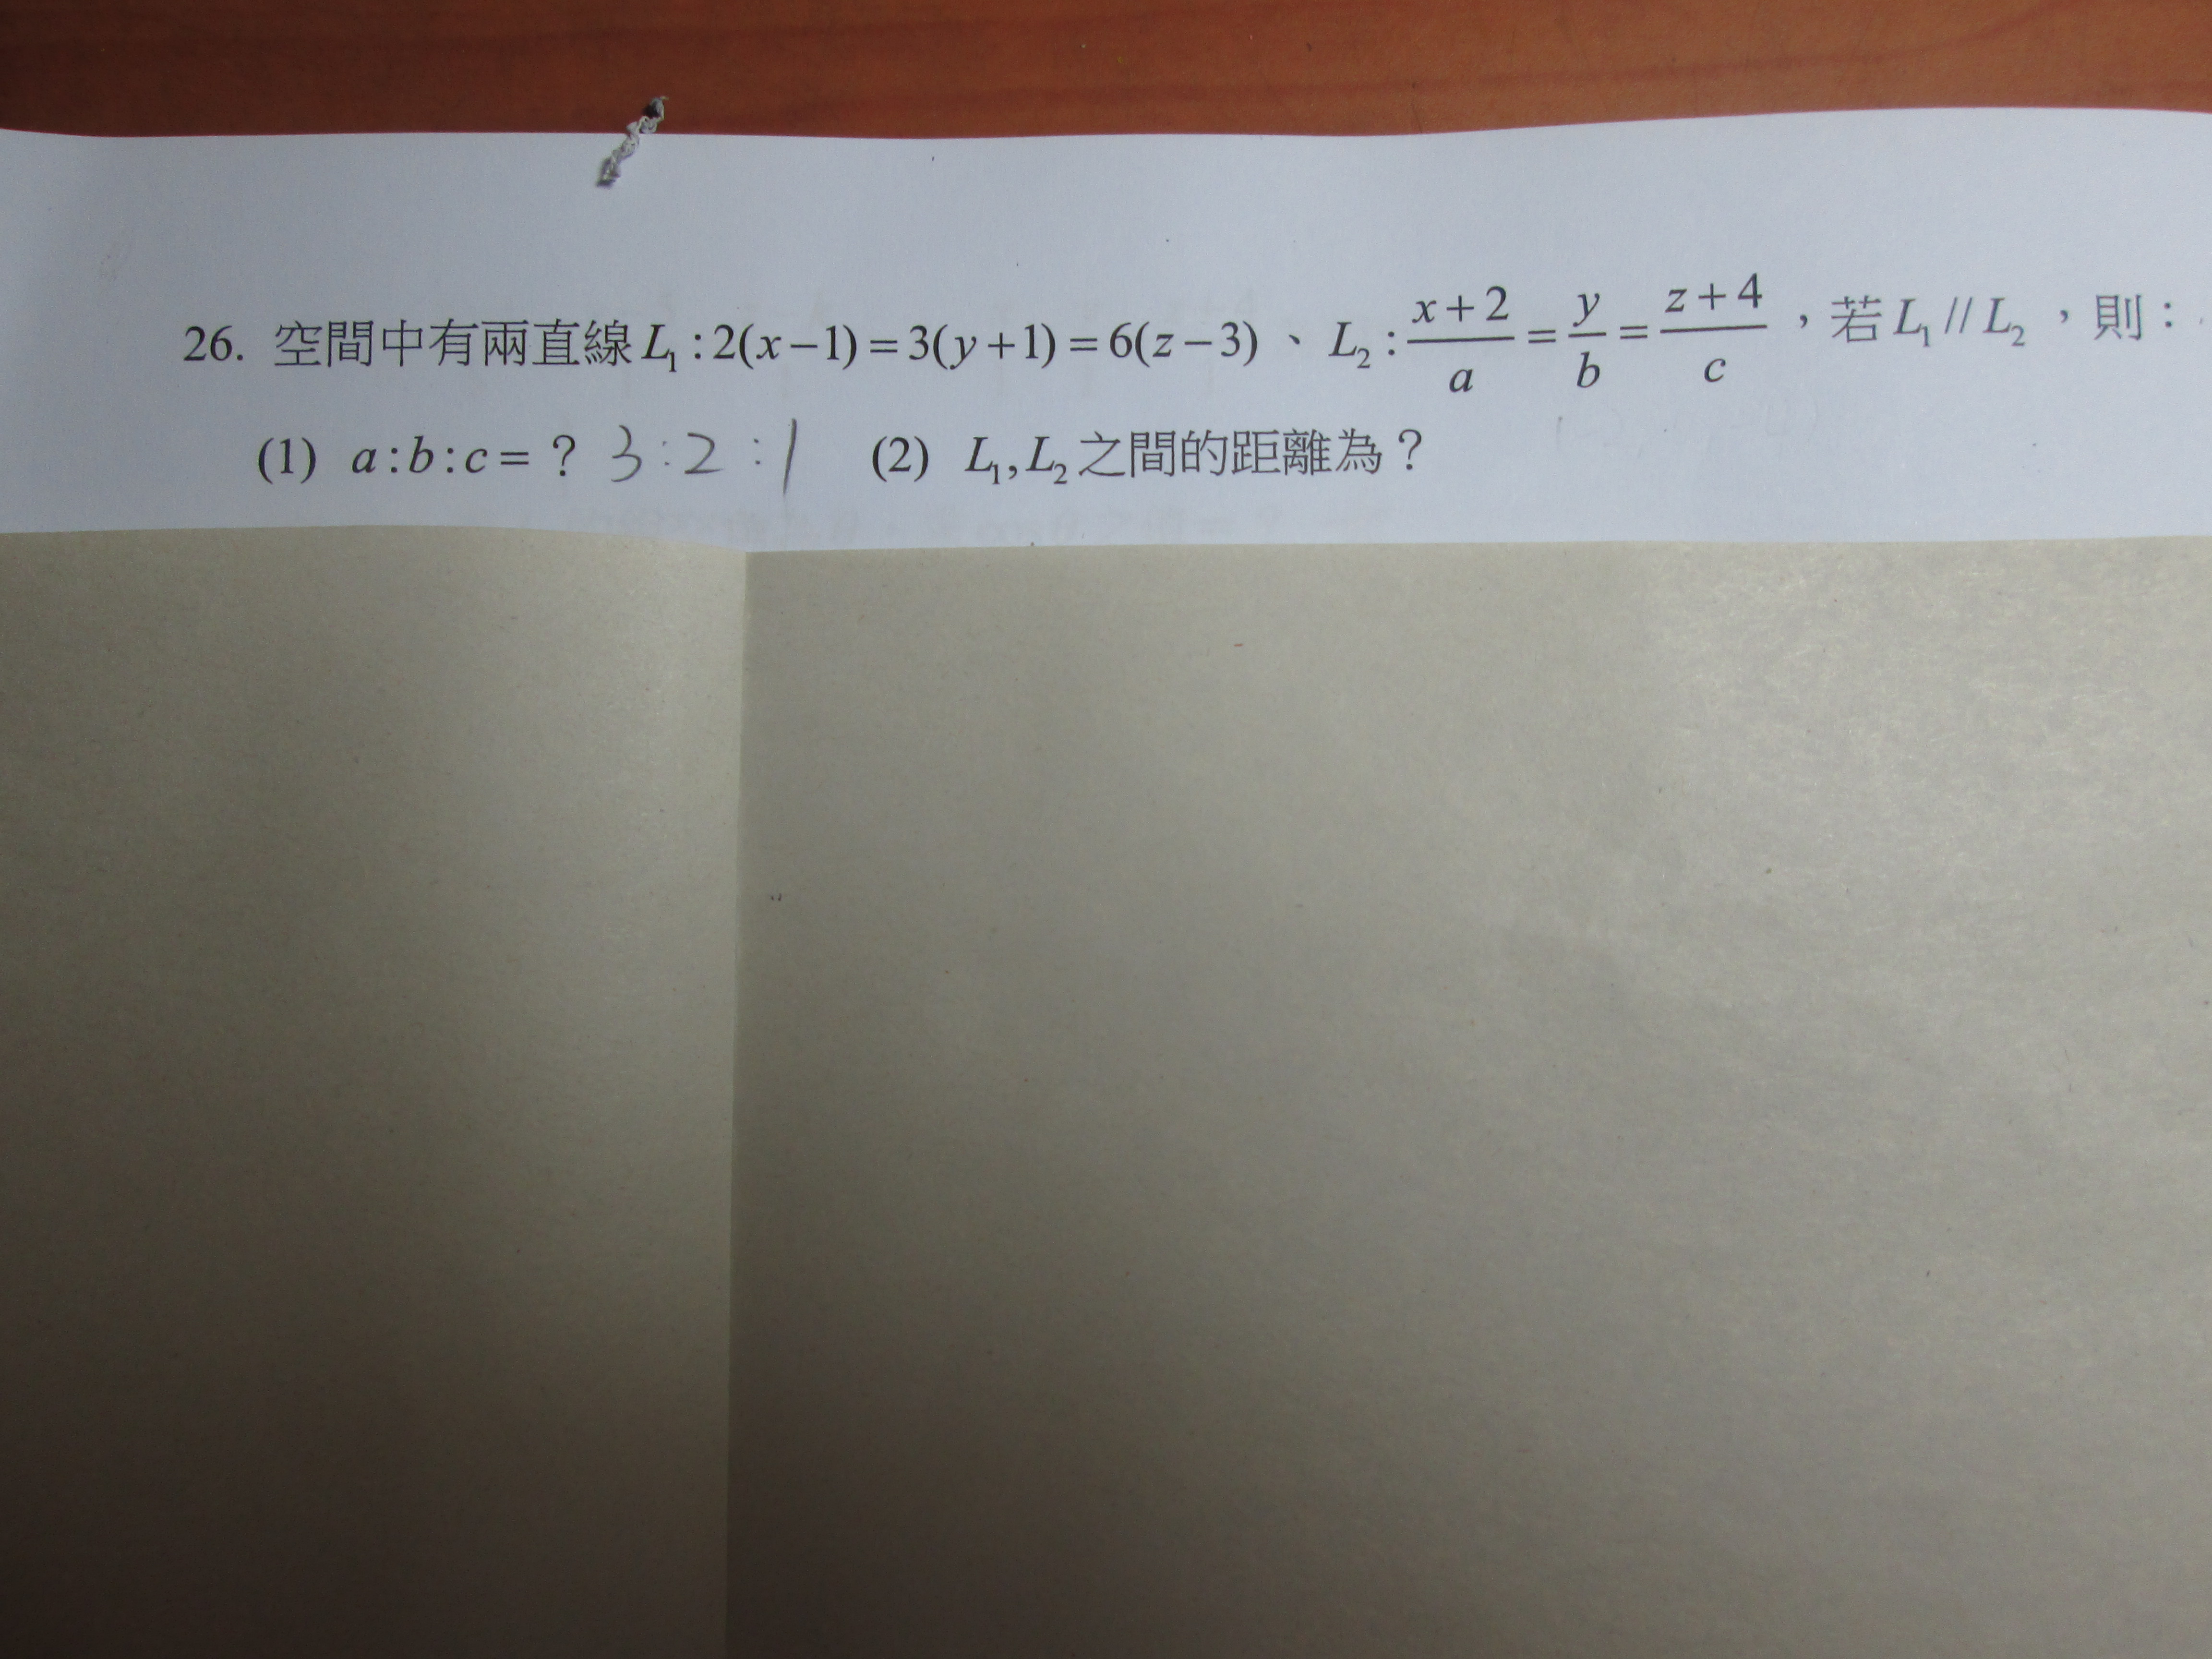 26. 空間中有兩直線 L₁ : 2(x−1) = 3(y+1) = 6(z−3) 、 L₂ : (x+2)/a = y/b = (z+4)/c ,若 L₁ // L₂ ,則:
(1) a : b : c = ? 3 : 2 : 1 (2) L₁, L₂ 之間的距離為?